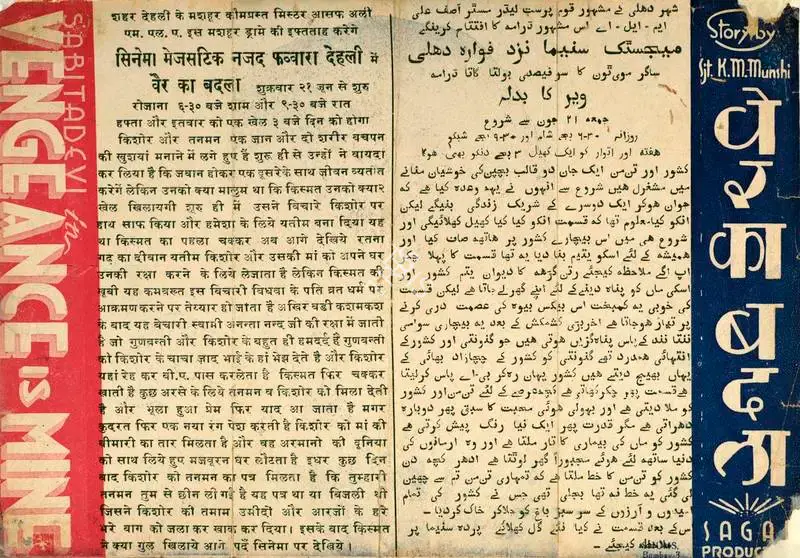 SABITA DEVI in
VENGEANCE IS MINE
शहर देहली के मशहर कौमप्रस्त मिस्टर आसफ अली
एम. एल. ए. इस मशहूर ड्रामे की इफ्तताह करेंगे
सिनेमा मेजसटिक नजद फव्वारा देहली में
वैर का बदला शुक्रवार २१ जून से शुरु
रोजाना ६-३० बजे शाम और ९-३० बजे रात
हफ्ता और इतवार को एक खेल ३ बजे दिन को होगा
किशोर और तनमन एक जान और दो शरीर बचपन
की खुशयां मनाने में लगे हुए हैं शुरु ही से उन्हों ने वायदा
कर लिया है कि जबान होकर एक दूसरेके साथ जीवन व्यतीत
करेंगे लेकिन उनको क्या मालुम था कि किस्मत उनको क्या२
खेल खिलायगी शुरु ही में उसने बिचारे किशोर पर
हाथ साफ किया और हमेशा के लिये यतीम बना दिया यह
था किस्मत का पहला चक्कर अब आगे देखिये रतना
गढ का दीवान यतीम किशोर और उसकी मां को अपने घर
उनकी रक्षा करने के लिये लेजाता है लेकिन किस्मत की
खूबी यह कमबख्त इस बिचारी विधवा के पति व्रत धर्म पर
आक्रमण करने पर तेय्यार हो जाता है अखिर बडी कशमकश
के बाद यह बेचारी स्वामी अनन्ता नन्द जी की रक्षा में जाती
है जो गुणवन्ती और किशोर के बहुत ही हमदर्द हैं गुणवन्ती
को किशोर के चाचा ज़ाद भाई के हां भेझ देते है और किशोर
यहां रेह कर बी.ए. पास करलेता है किस्मत फिर चक्कर
खाती है कुछ अरसे के लिये तनमन व किशोर को मिला देती
है और भूला हुआ प्रेम फिर याद आ जाता है मगर
कुदरत फिर एक नया रंग पेश करती है किशोर को मां की
बीमारी का तार मिलता है और वह अरमानो की दूनिया
को साथ लिये हुए मजबूरन घर लौटता है इधर कुछ दिन
बाद किशोर को तनमन का पत्र मिलता है कि तुम्हारी
तनमन तुम से छीन ली गई है यह पत्र था या बिजली थी
जिसने किशोर की तमाम उमीदों और आरजों के हरे
भरे बाग को जला कर खाक कर दिया। इसके बाद किस्मत
ने क्या गुल खिलाये आगे पर्दे सिनेमा पर देखिये।
شهر دهلی کے مشهور قوم پرست لیڈر مسٹر آصف علی
ایم - ایل - اے اس مشهور ڈرامه کا افتتاح کرینگے
میجسٹک سنیما نزد فواره دهلی
ساگر موی ٹون کا سو فیصدی بولتا گاتا ڈرامه
ویر کا بدله
جمعه ۲۱ جون سے شروع
روزانه ۶-۳۰ بجے شام اور ۹-۳۰ بجے شبکو
هفته اور اتوار کو ایک کهیل ۳ بجے دنکو بهی هوگا
کشور اور تن من ایک جان دو قالب بچپن کی خوشیاں منانے
میں مشغول هیں شروع سے انهوں نے یهه وعده کیا هے که
جوان هوکر ایک دوسرے کے شریک زندگی بنینگے لیکن
انکو کیا معلوم تها که قسمت انکو کیا کیا کهیل کهلائیگی اور
شروع هی میں اس بیچارے کشور پر هاتهه صاف کیا اور
همیشه کے لئے اسکو یتیم بنا دیا یه تها قسمت کا پهلا چکر
اب آگے ملاحظه کیجئے رتن گڑهه کا دیوان یتیم کشور اور
اسکی ماں کو پناه دینے کے لئے اپنے گهر لے جاتا هے لیکن قسمت
کی خوبی یه کمبخت اس بیکس بیوه کی عصمت دری کرنے
پر تیار هوجاتا هے آخر بڑی کشمکش کے بعد یه بیچاری سوامی
اننتا نند کے پاس پناه گزیں هوتی هیں جو گنونتی اور کشور کے
انتهائی همدرد تهے گنونتی کو کشور کے چچازاد بهائی کے
یهاں بهیج دیتے هیں کشور یهاں ره کر بی - اے پاس کرلیتا
هے قسمت پهر چکر کهاتی هے کچهه عرصه کے لئے تن من اور کشور
کو ملا دیتی هے اور بهولی هوئی محبت کا سبق پهر دوباره
دهراتی هے مگر قدرت پهر ایک نیا رنگ پیش کرتی هے
کشور کو ماں کی بیماری کا تار ملتا هے اور وه ارمانوں کی
دنیا ساتهه لئے هوئے مجبوراً گهر لوٹتا هے ادهر کچهه دن
بعد کشور کو تن من کا خط ملتا هے که تمهاری تن من تم سے چهین
لی گئی یه خط نه تها بجلی تهی جس نے کشور کی تمام
امیدوں و آرزوں کے سر سبز باغ کو جلا کر خاک کردیا -
اس کے بعد قسمت نے کیا کیا گل کهلائے پرده سنیما پر
ملاحظه کیجئے -
Story by
Sjt. K.M. Munshi
वेर का बदला
SAGA
PRODUC